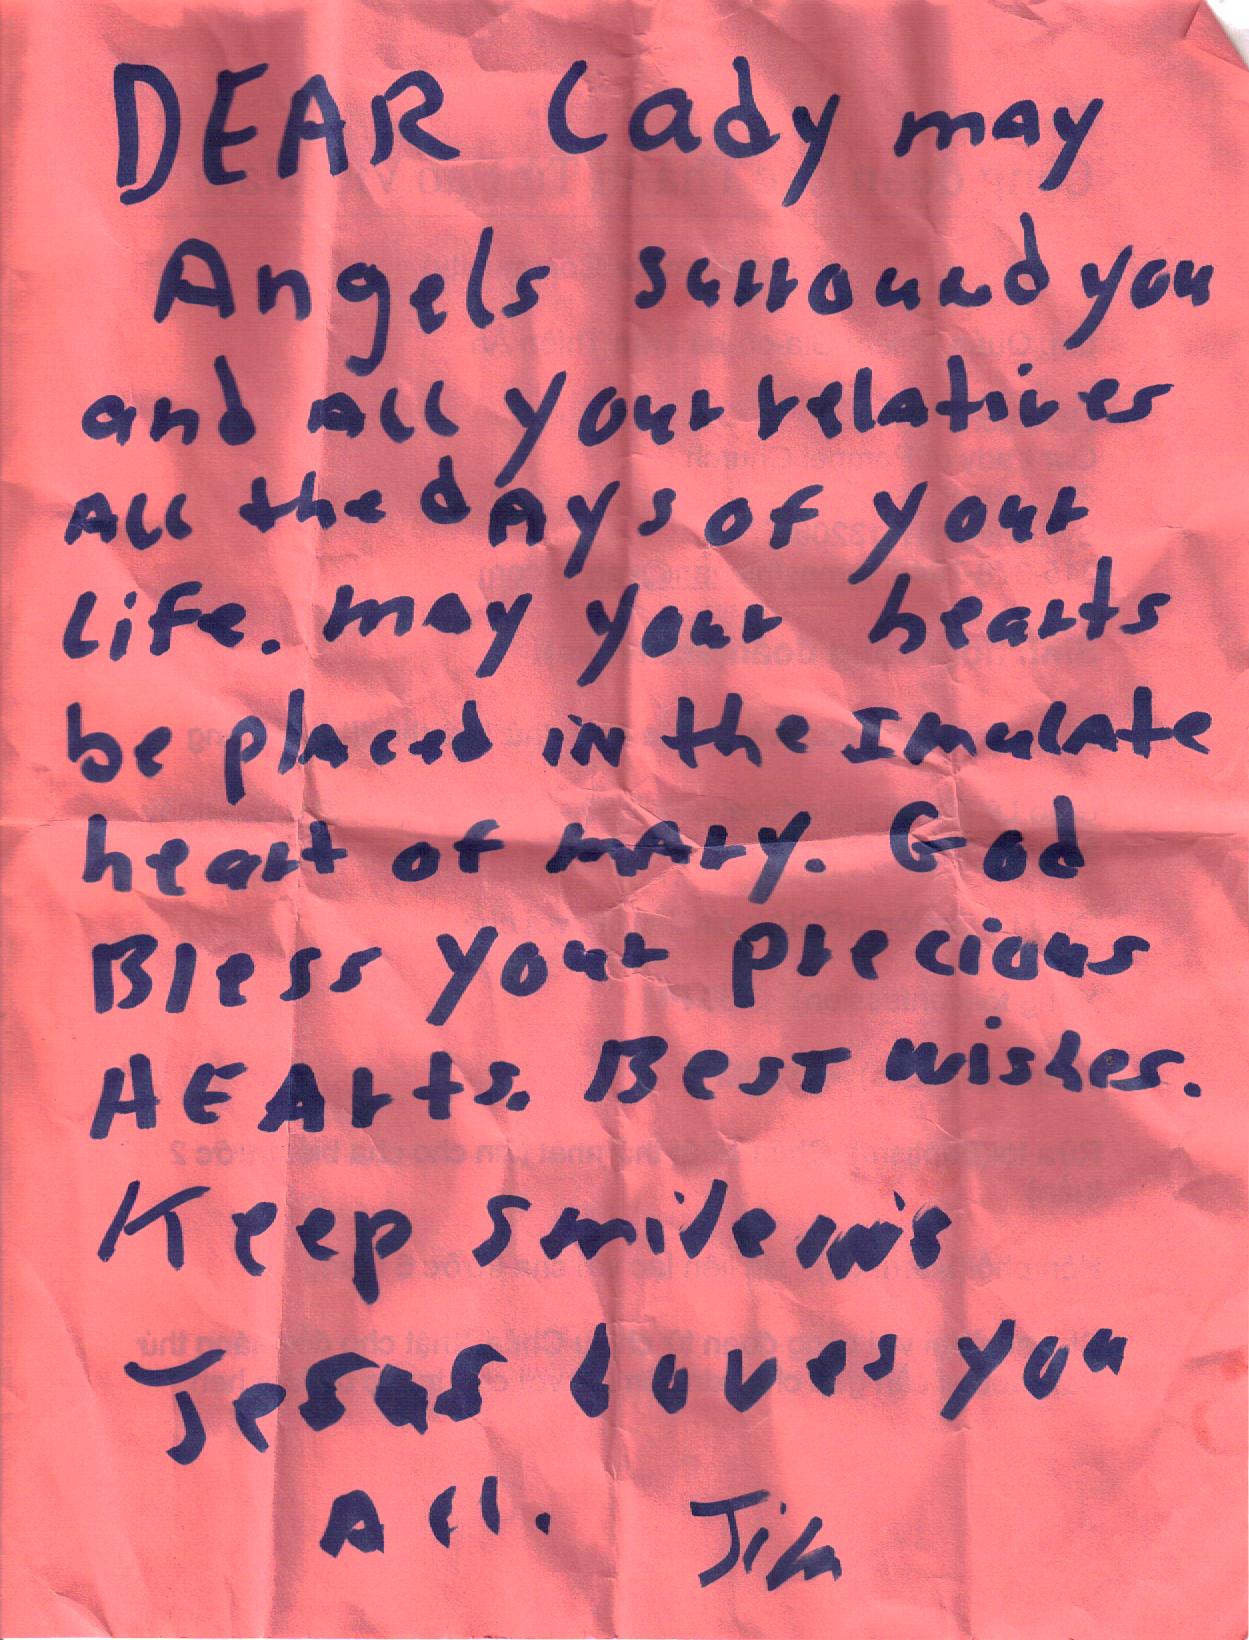 DEAR Lady may
Angels surround you
and all your relatives
All the dAys of your
Life. may your hearts
be placed in the Imulate
heart of mary. God
Bless your precious
HEArts. BesT wishes.
Keep smile
Jesus Loves you
All. Jim